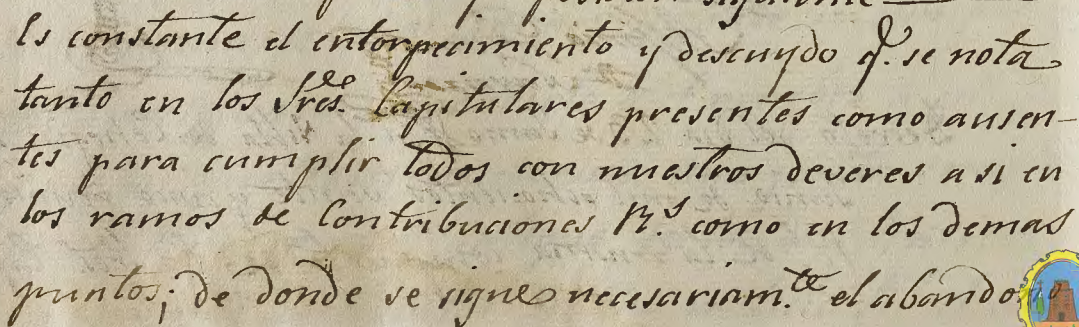 Es constante el entorpecimiento y descuydo q.e se nota
tanto en los Sres. Capitulares presentes como ausen-
tes para cumplir todos con nuestros deveres asi en
los ramos de Contribuciones R.s como en los demas
puntos; de donde se sigue necesariam.te el abandono